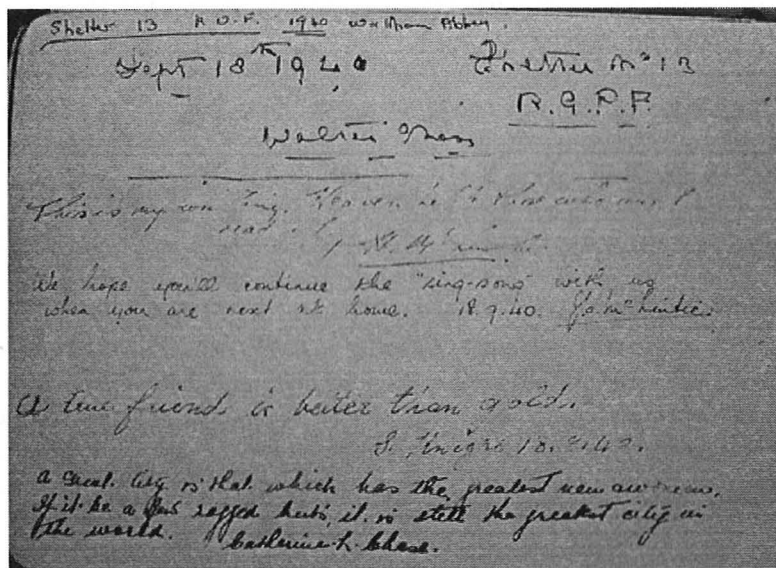 Shelter 13 R.O.F. 1940 Waltham Abbey.
Sept 18th 1940 Shelter No 13
R.G.P.F.
Walter
This is my writing. Heaven help those who can't
read it!
We hope you'll continue the "sing-song" with us
when you are next at home. 18.9.40.
A true friend is better than gold.
S.
A Great City is that which has the greatest men and women.
If it be a few ragged huts, it is still the greatest city in
the world. Catherine h. Chase.